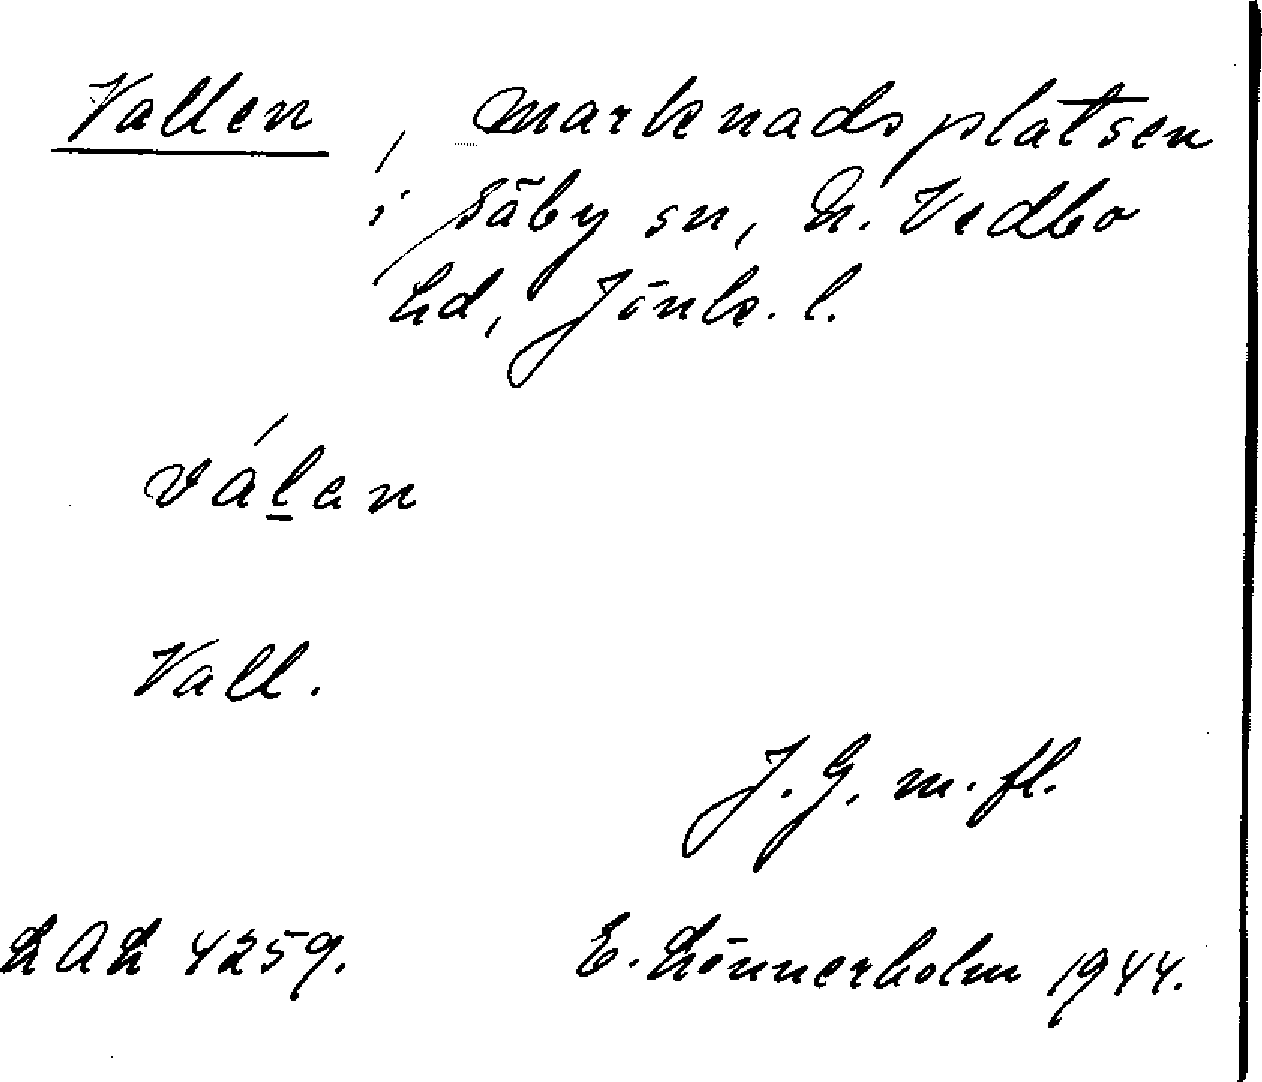 Vallen, marknadsplatsen
i Säby sn, N. Vedbo
hd, Jönk. l.
váḻan
Vall.
J. G. m. fl.
LAL 4259.
E. Lönnerholm 1944.